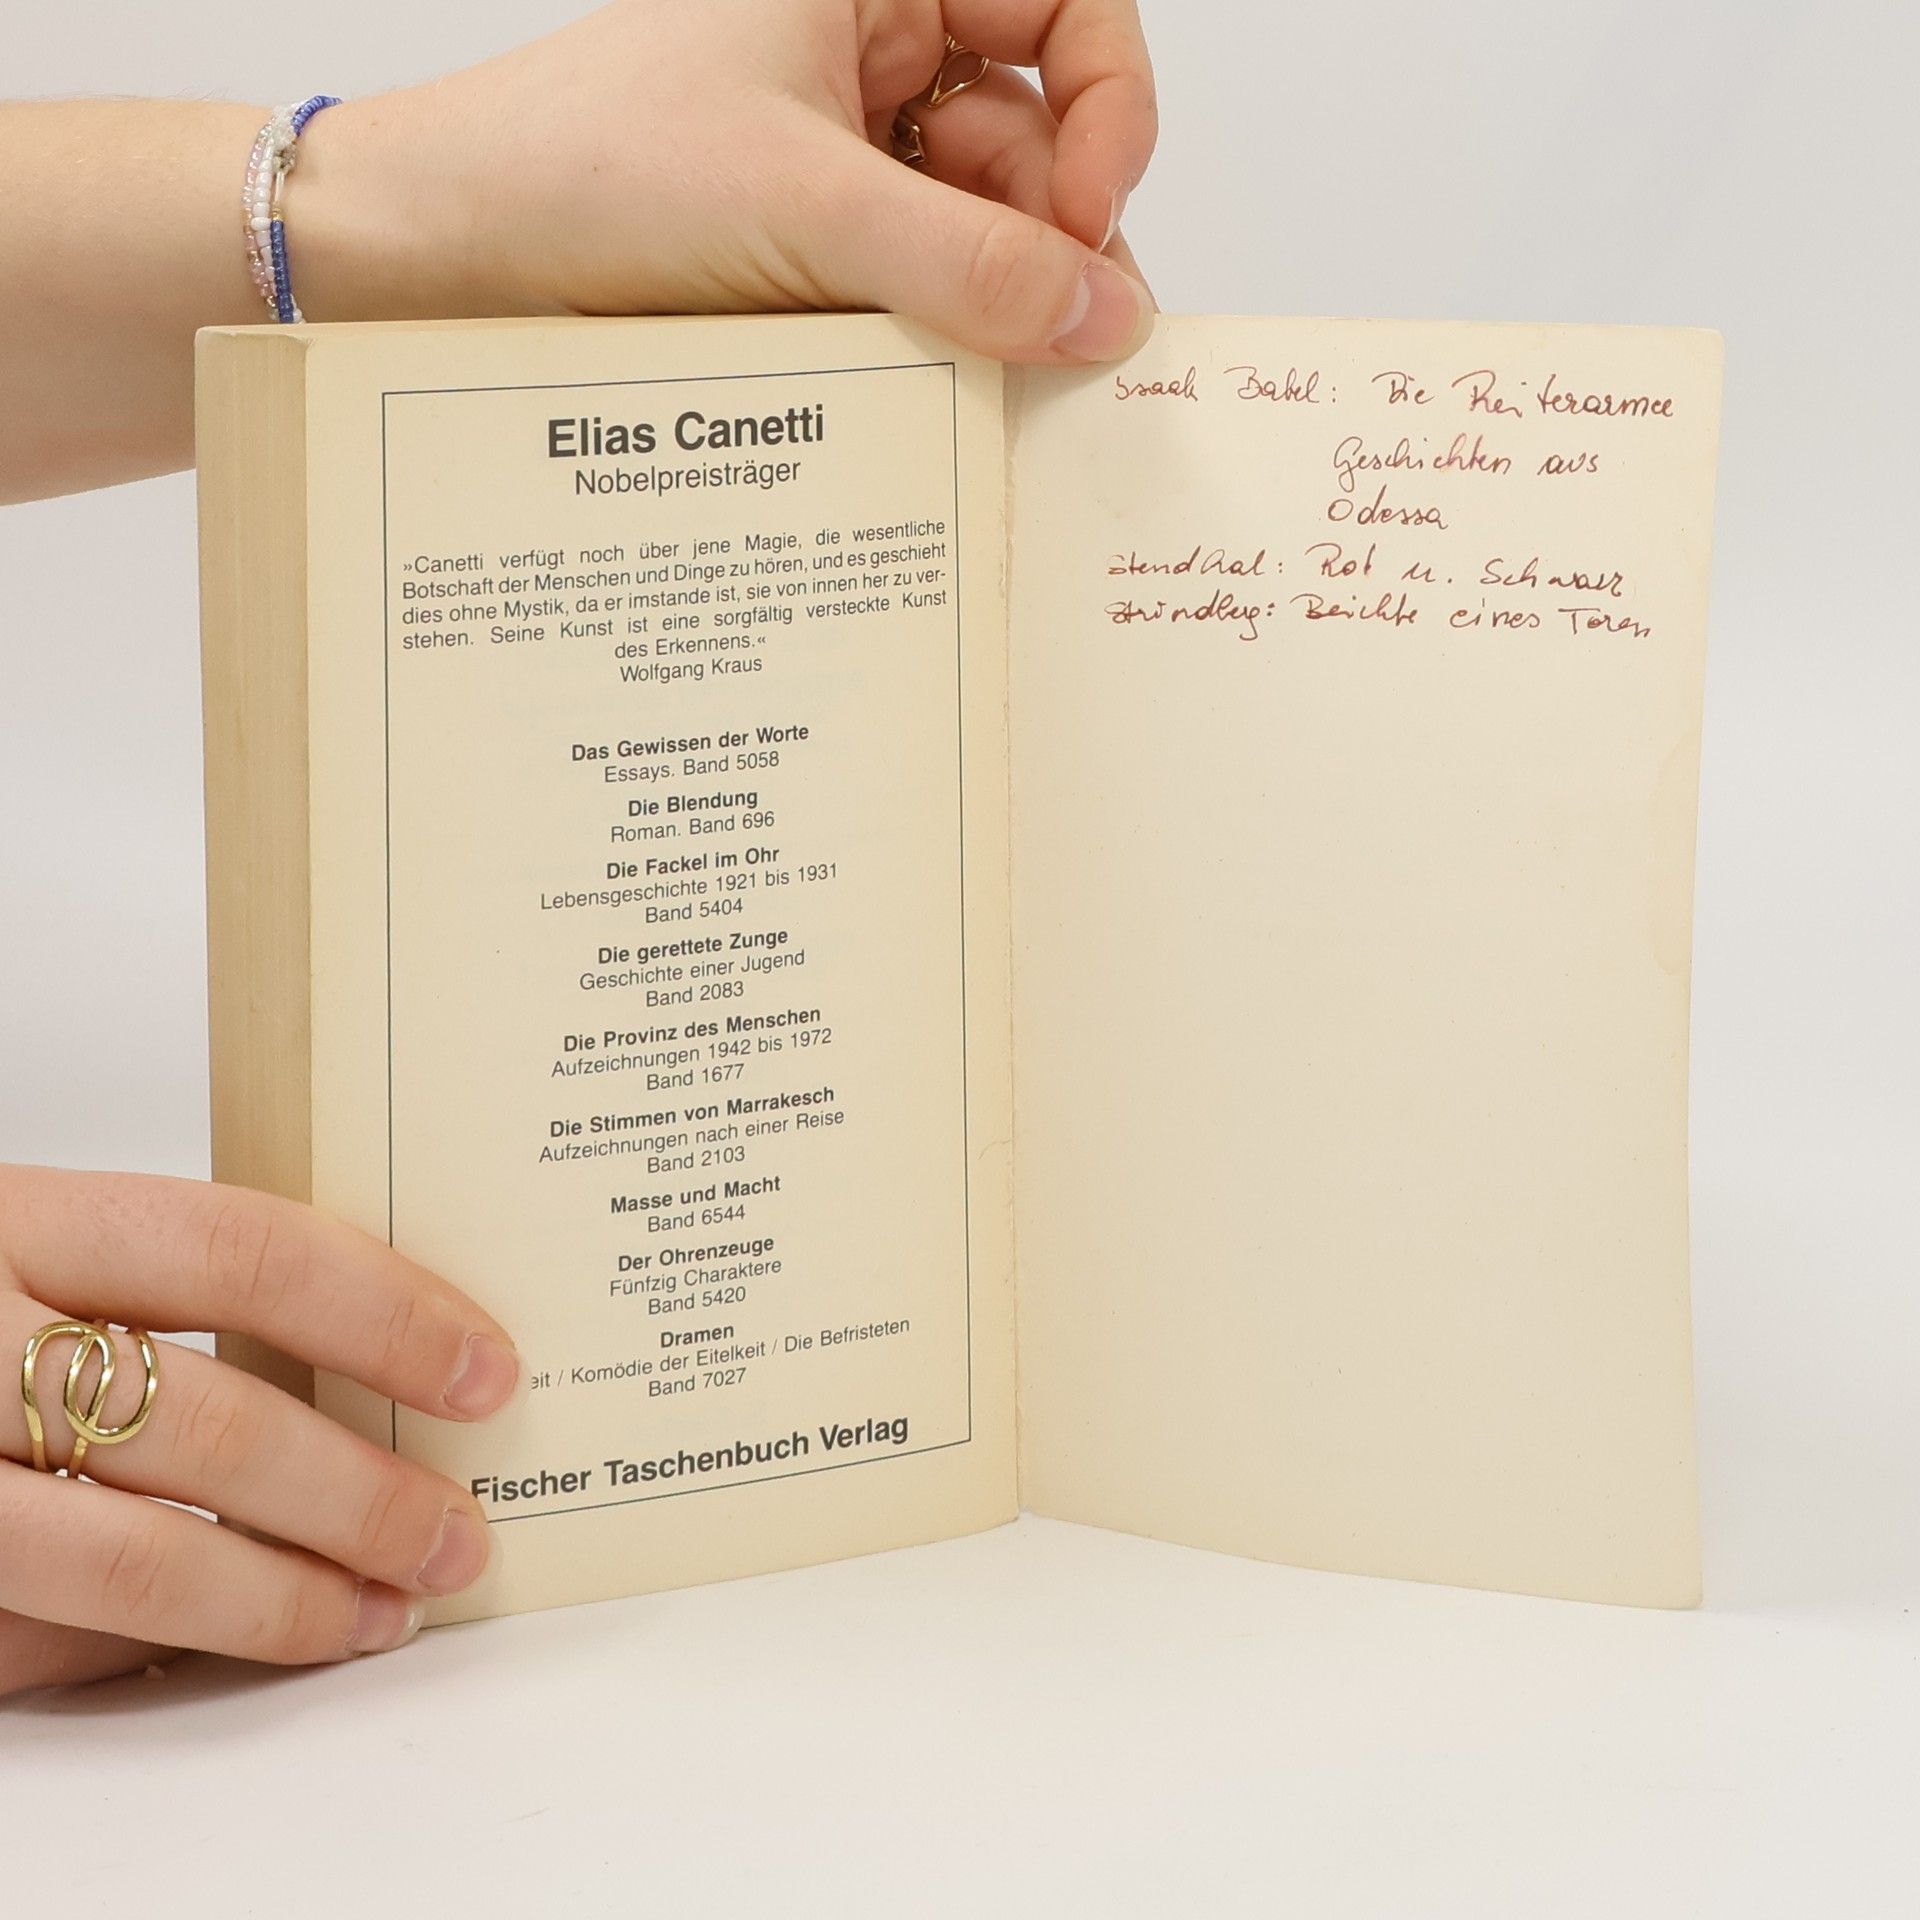 Elias Canetti
Nobelpreisträger
»Canetti verfügt noch über jene Magie, die wesentliche
Botschaft der Menschen und Dinge zu hören, und es geschieht
dies ohne Mystik, da er imstande ist, sie von innen her zu ver-
stehen. Seine Kunst ist eine sorgfältig versteckte Kunst
des Erkennens.«
Wolfgang Kraus
Das Gewissen der Worte
Essays. Band 5058
Die Blendung
Roman. Band 696
Die Fackel im Ohr
Lebensgeschichte 1921 bis 1931
Band 5404
Die gerettete Zunge
Geschichte einer Jugend
Band 2083
Die Provinz des Menschen
Aufzeichnungen 1942 bis 1972
Band 1677
Die Stimmen von Marrakesch
Aufzeichnungen nach einer Reise
Band 2103
Masse und Macht
Band 6544
Der Ohrenzeuge
Fünfzig Charaktere
Band 5420
Dramen
eit / Komödie der Eitelkeit / Die Befristeten
Band 7027
Fischer Taschenbuch Verlag
Isaak Babel: Die Reiterarmee
Geschichten aus
Odessa
Stendhal: Rot u. Schwarz
Strindberg: Beichte eines Toren